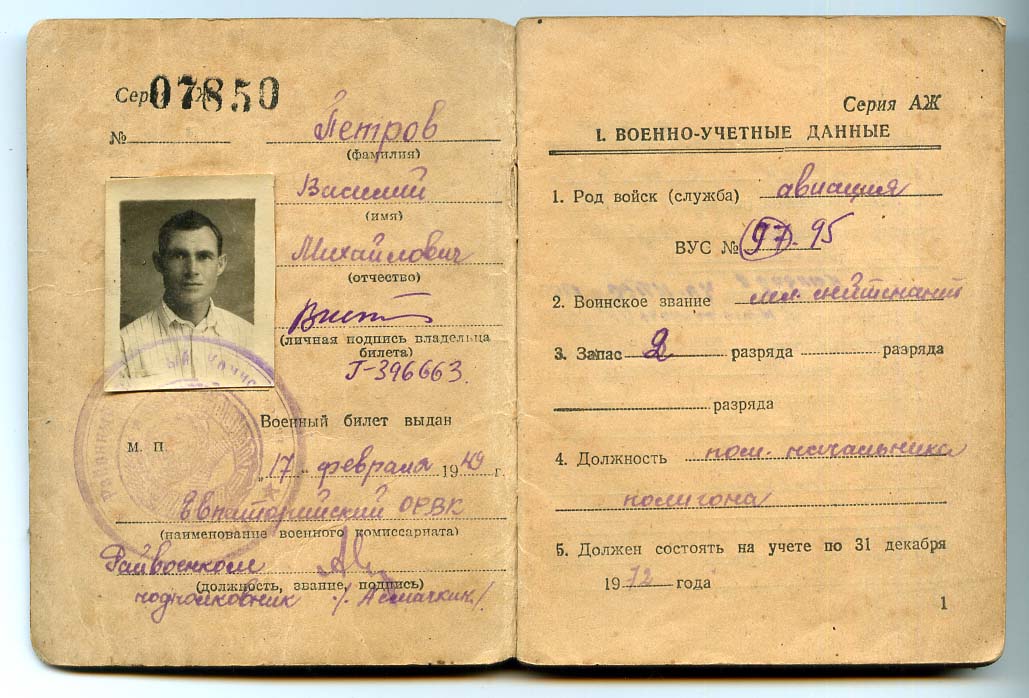 Серия АЖ 07850
№
Петров
(фамилия)
Василий
(имя)
Михайлович
(отчество)
(личная подпись владельца
билета)
Г-396663.
Военный билет выдан
М. П.
„17" февраля 1949 г.
Евпаторийский ОРВК
(наименование военного комиссариата)
Райвоенком
(должность, звание, подпись)
подполковник
Серия АЖ
I. ВОЕННО-УЧЕТНЫЕ ДАННЫЕ
1. Род войск (служба) авиация
ВУС № 97.95
2. Воинское звание мл. лейтенант
3. Запас 2 разряда разряда
разряда
4. Должность пом. начальника
полигона
5. Должен состоять на учете по 31 декабря
1972 года
1